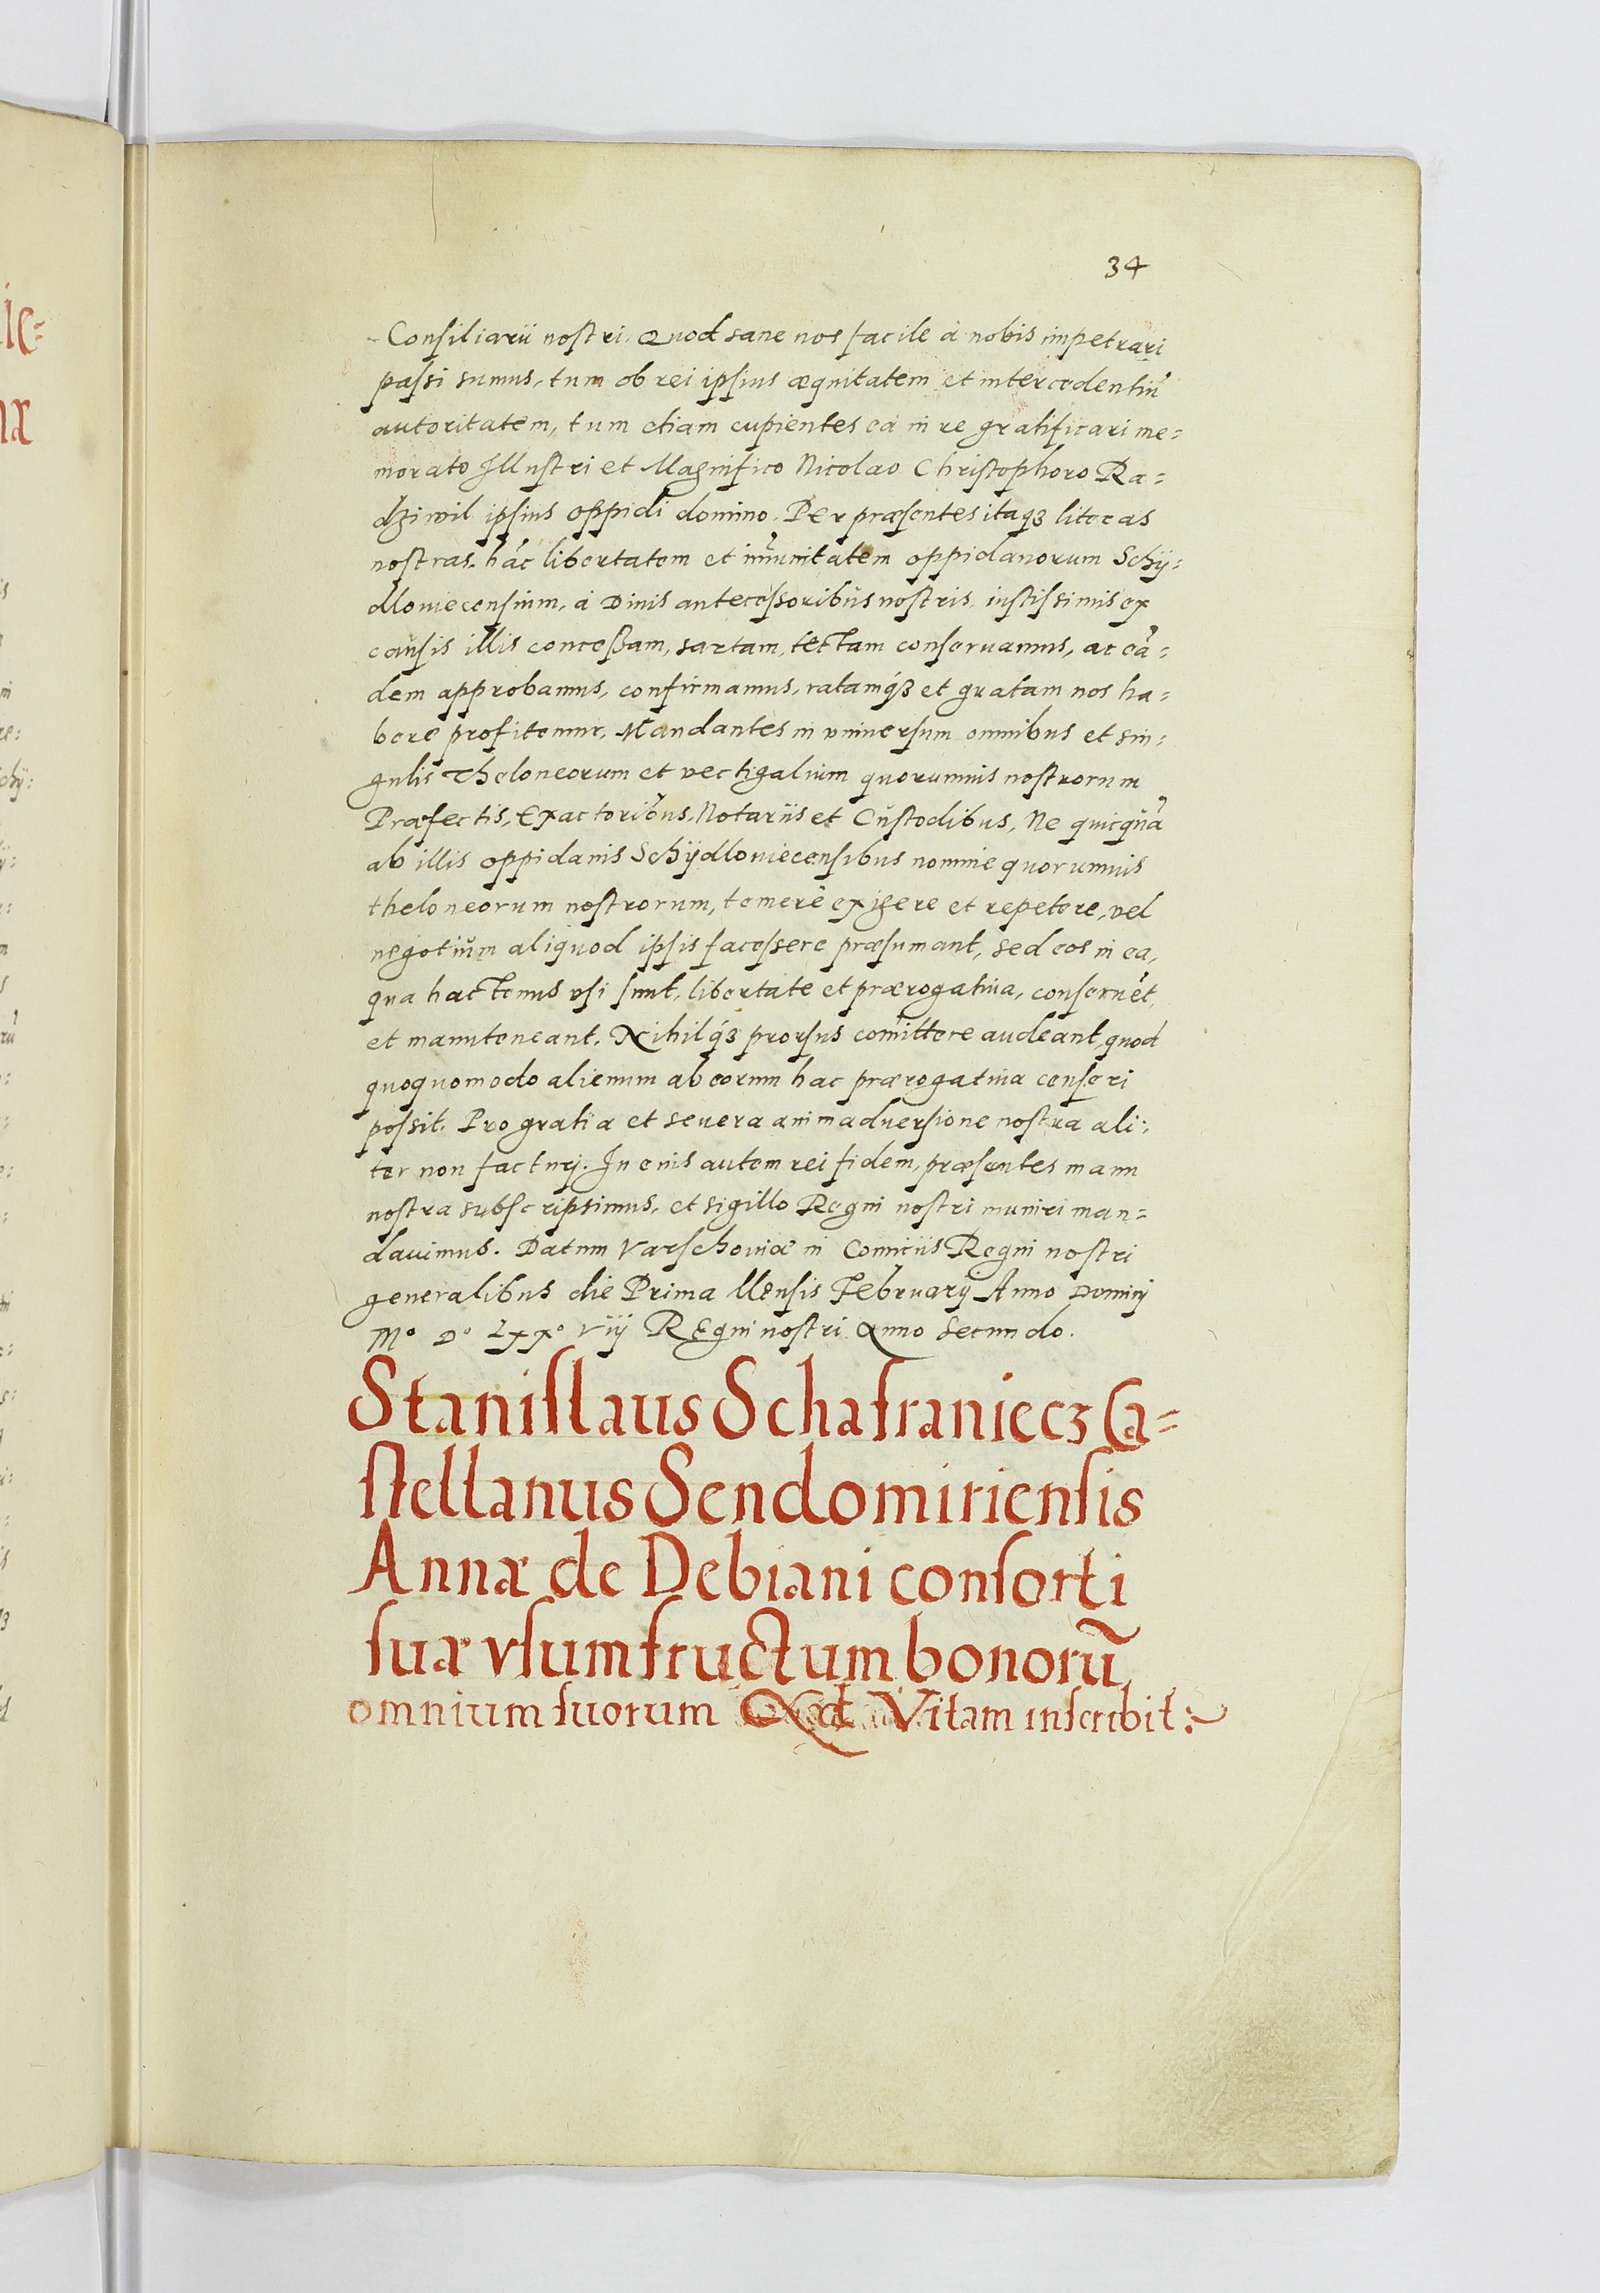 34
Consiliarii nostri. Quod sane nos facile à nobis impetrari
passi sumus, tum ob rei ipsius æquitatem et intercedentiũ
autoritatem, tum etiam cupientes ea in re gratificari me=
morato Illustri et Magnifico Nicolao Christophoro Ra=
dziwil ipsius oppidi domino. Per præsentes itaqꝫ literas
nostras. hãc libertatem et im̃unitatem oppidanorum Schÿ=
dlouiecensium, à Diuis antecessoribus nostris iustissimis ex
causis illis conceßam, sartam, tectam conseruamus, ac eã=
dem approbamus, confirmamus, ratamqꝫ et gratam nos ha=
bere profitemur, Mandantes in vniuersum omnibus et sin=
gulis Theloneorum et vectigalium quorumuis nostrorum
Præfectis, Exactoribus, Notariis et Custodibus, Ne quicquã
ab illis oppidanis Schÿdlouiecensibus nomine quorumuis
theloneorum nostrorum, temerè exigere et repetere, vel
negotium aliquod ipsis facessere præsumant, sed eos in ea,
qua hactenus vsi sunt, libertate et prærogatiua, conseruẽt
et manuteneant. Nihilqꝫ prorsus com̃ittere audeant, quod
quoquomodo alienum ab eorum hac prærogatiua censeri
possit. Pro gratia et seuera animaduersione nostra ali=
ter non facturi. In cuius autem rei fidem, præsentes manu
nostra subscripsimus, et sigillo Regni nostri muniri man=
dauimus. Datum Varschouiæ in Comitiis Regni nostri
generalibus die Prima Mensis Februarij Anno Domini
Mº Dº Lxxº viij Regni nostri Anno Secundo.
Stanislaus Schafraniecz Ca=
stellanus Sendomiriensis
Annæ de Debiani consorti
suæ vsumfructum bonorũ
omnium suorum Ad Vitam inscribit: